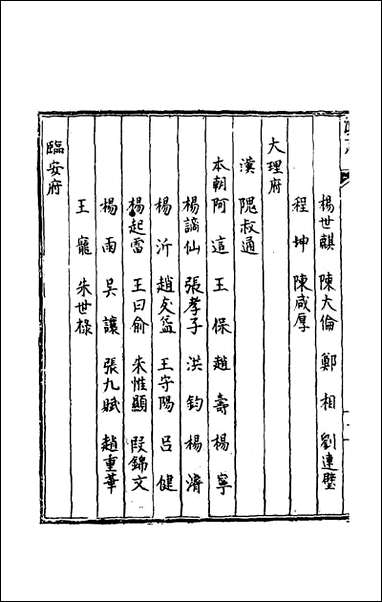 楊世麒 陳大倫 鄭相 劉連璧
程坤 陳咸厚
大理府
漢 隗叔通
本朝 阿這 王保 趙壽 楊寧
楊謫仙 張孝子 洪鈞 楊濟
楊沂 趙 王守陽 呂健
楊起雷 王曰俞 朱惟顯 段錦文
楊雨 吳讓 張九賦 趙重華
王寵 朱世祿
臨安府